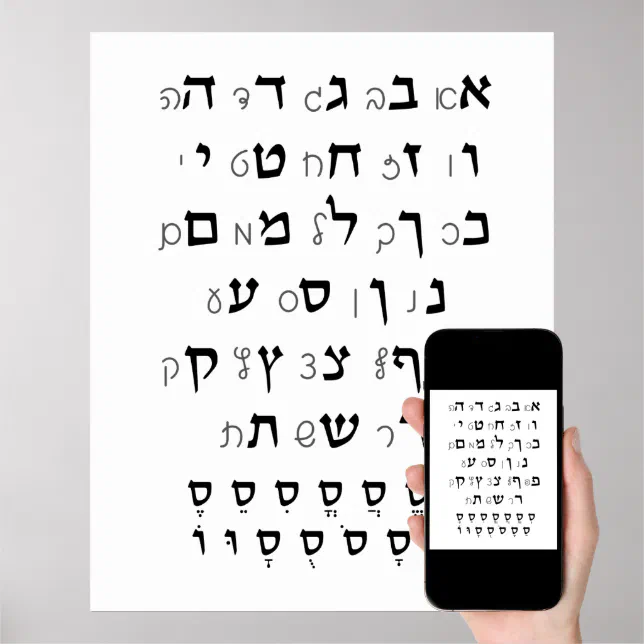 א א ב ב ג ג ד ד ה ה
ו ו ז ז ח ח ט ט י י
כ כ ך ך ל ל מ מ ם ם
נ נ ן ן ס ס ע ע
ף ף צ צ ץ ץ ק ק
ר ר ש ש ת ת
סֱ סֲ סֳ סִ סֵ סֶ
סָ סֹ סֻ סָ וּ וֹ
א א ב ב ג ג ד ד ה ה
ו ו ז ז ח ח ט ט י י
כ כ ך ך ל ל מ מ ם ם
נ נ ן ן ס ס ע ע
פ פ ף ף צ צ ץ ץ ק ק
ר ר ש ש ת ת